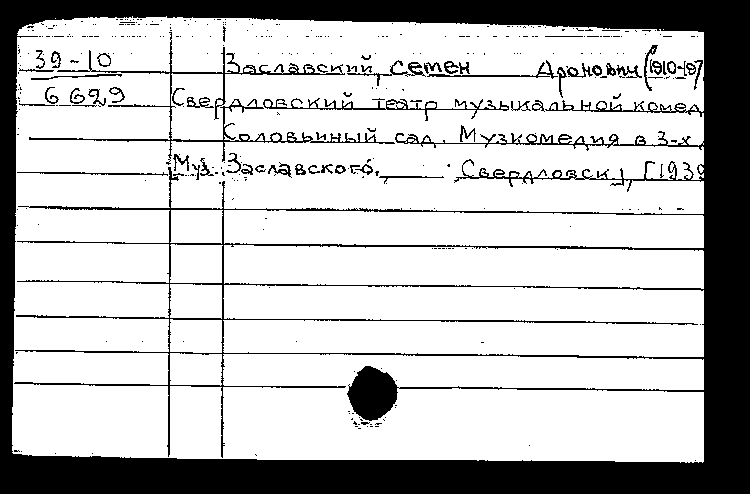 39-10 Заславский, Семен Аронович (1910-197
6629 Свердловский театр музыкальной комед
Соловьиный сад. Музкомедия в 3-х
Муз. Заславского. Свердловск], [1939